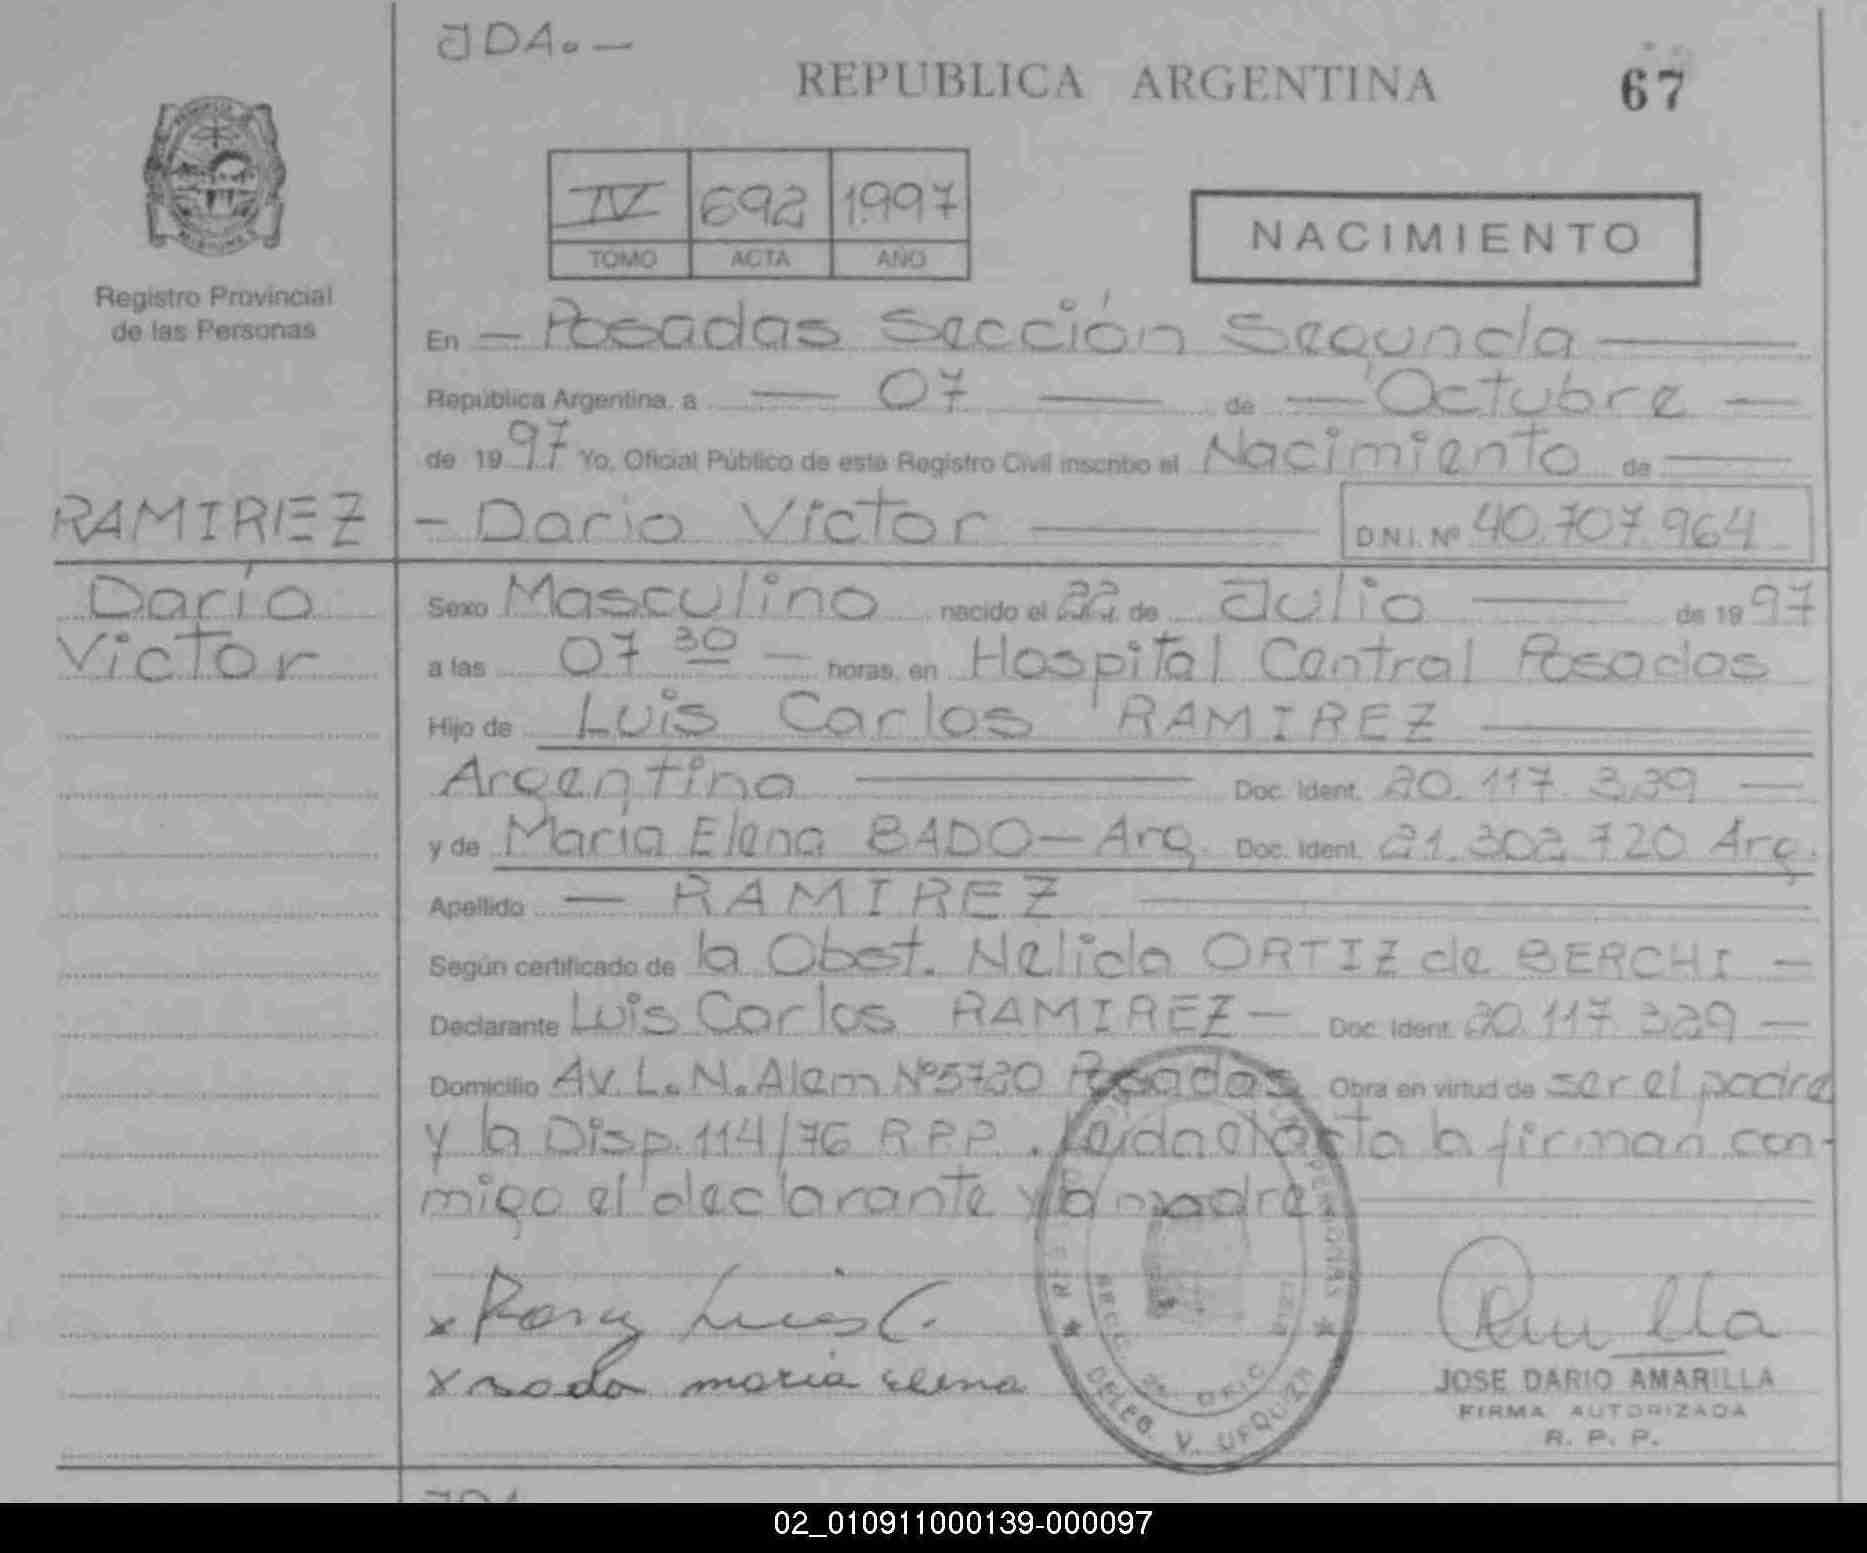 JDA.-
REPUBLICA ARGENTINA 67
IV 692 1997
TOMO ACTA AÑO
NACIMIENTO
Registro Provincial
de las Personas
En — Posadas Sección Segunda —
República Argentina, a — 07 — de — Octubre —
de 1997 Yo, Oficial Público de este Registro Civil inscribo el Nacimiento de —
RAMIREZ
Darío
Victor
- Dario Victor — D.N.I. Nº 40.707.964
Sexo Masculino nacido el 22 de Julio — de 1997
a las 07 30 — horas, en Hospital Central Posadas
Hijo de Luis Carlos RAMIREZ —
Argentino — Doc. Ident. 20.117.339 —
y de María Elena BADO — Arg. Doc. Ident. 21.302.720 Arg.
Apellido — RAMIREZ —
Según certificado de la Obst. Nelida ORTIZ de BERCHI —
Declarante Luis Carlos RAMIREZ — Doc. Ident. 20.117.339 —
Domicilio Av. L. N. Alem Nº 5720 Posadas Obra en virtud de ser el padre
y la Disp. 114/76 R.P.P. . Leida el acta la firman con-
migo el declarante y la madre —
x Luis C.
x bado maria elena
DELEG. V. URQUIZA
JOSE DARIO AMARILLA
FIRMA AUTORIZADA
R. P. P.
02_010911000139-000097